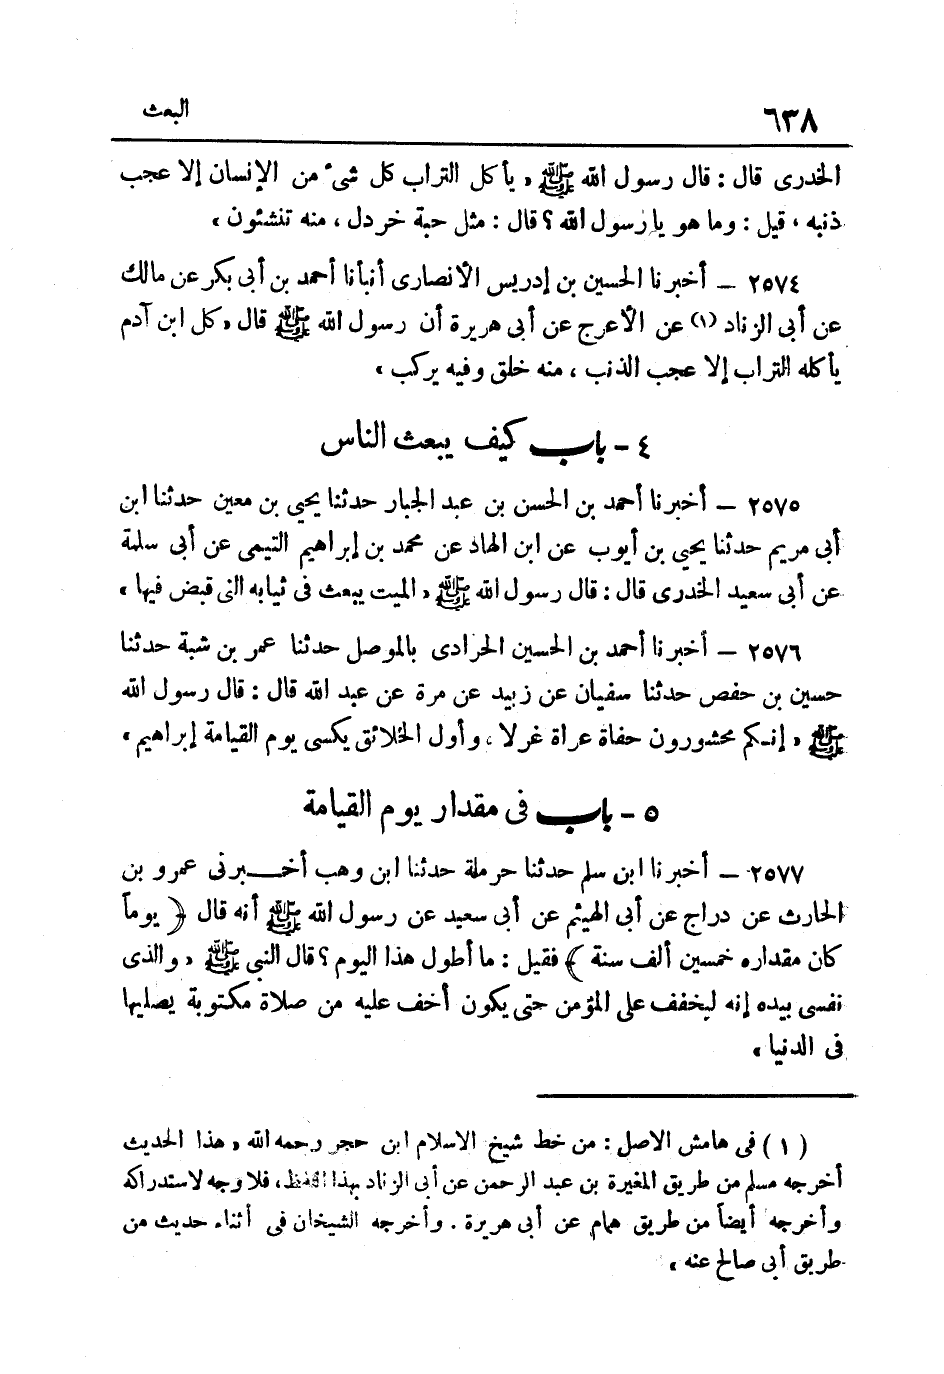 ٦٣٨
البعث
الخدرى قال : قال رسول الله ﷺ « يأكل التراب كل شىء من الإنسان إلا عجب
ذنبه ، قيل : وما هو يا رسول الله ؟ قال : مثل حبة خردل ، منه تنشئون »
٢٥٧٤ – أخبرنا الحسين بن إدريس الأنصارى أنبأنا أحمد بن أبى بكر عن مالك
عن أبى الزناد (١) عن الأعرج عن أبى هريرة أن رسول الله ﷺ قال « كل ابن آدم
يأكله التراب إلا عجب الذنب ، منه خلق وفيه يركب »
٤ – باب كيف يبعث الناس
٢٥٧٥ – أخبرنا أحمد بن الحسن بن عبد الجبار حدثنا يحيى بن معين حدثنا ابن
أبى مريم حدثنا يحيى بن أيوب عن ابن الهاد عن محمد بن إبراهيم التيمى عن أبى سلمة
عن أبى سعيد الخدرى قال : قال رسول الله ﷺ « الميت يبعث فى ثيابه التى قبض فيها »
٢٥٧٦ – أخبرنا أحمد بن الحسين الجرادى بالموصل حدثنا عمر بن شبة حدثنا
حسين بن حفص حدثنا سفيان عن زبيد عن مرة عن عبد الله قال : قال رسول الله
ﷺ « إنكم محشورون حفاة عراة غرلا ، وأول الخلائق يكسى يوم القيامة إبراهيم »
٥ – باب فى مقدار يوم القيامة
٢٥٧٧ – أخبرنا ابن سلم حدثنا حرملة حدثنا ابن وهب أخبرنى عمرو بن
الحارث عن دراج عن أبى الهيثم عن أبى سعيد عن رسول الله ﷺ أنه قال ﴿ يوماً
كان مقداره خمسين ألف سنة ﴾ فقيل : ما أطول هذا اليوم ؟ قال النبى ﷺ « والذى
نفسى بيده إنه ليخفف على المؤمن حتى يكون أخف عليه من صلاة مكتوبة يصليها
فى الدنيا »
(١) فى هامش الاصل : من خط شيخ الاسلام ابن حجر رحمه الله « هذا الحديث
أخرجه مسلم من طريق المغيرة بن عبد الرحمن عن أبى الزناد بهذا اللفظ ، فلا وجه لاستدراكه
وأخرجه أيضاً من طريق همام عن أبى هريرة . وأخرجه الشيخان فى أثناء حديث من
طريق أبى صالح عنه »